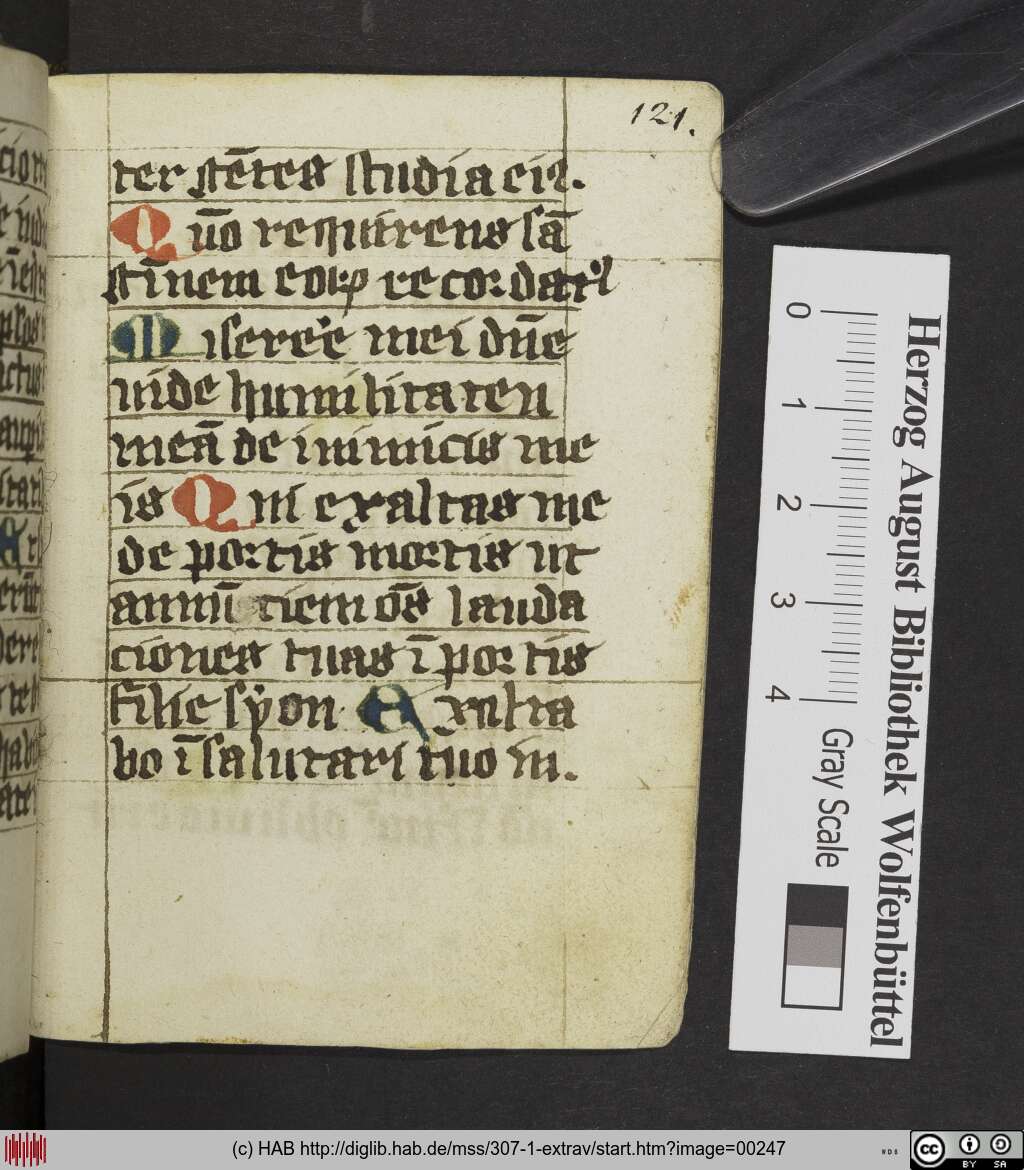 121.
ter gētes studia eiꝰ.
Qūo requirens sā
guinem eoꝝ recordatꝰ
Misere'e mei dn̄e
uide humilitaten
meā de inimicis me
is Qui exaltas me
de portis mortis ut
annuū ciem oēs lauda
ciones tuas ī portis
filie syon Exulta
bo ī salutari tuo in.
Herzog August Bibliothek Wolfenbüttel
0 1 2 3 4
Gray Scale
(c) HAB http://diglib.hab.de/mss/307-1-extrav/start.htm?image=00247
cc BY SA